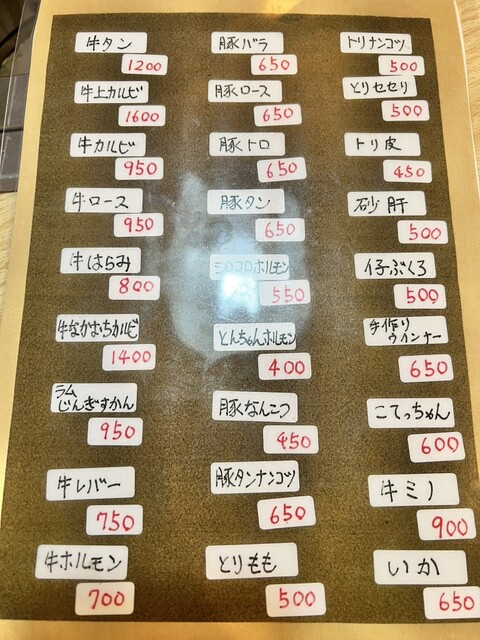 牛タン
1200
牛上カルビ
1600
牛カルビ
950
牛ロース
950
牛はらみ
800
牛なかおちカルビ
1400
ラム
じんぎすかん
950
牛レバー
750
牛ホルモン
700
豚バラ
650
豚ロース
650
豚トロ
650
豚タン
650
シロコロホルモン
550
とんちゃんホルモン
400
豚なんこつ
450
豚タンナンコツ
650
とりもも
500
トリナンコツ
500
とりセセリ
500
トリ皮
450
砂肝
500
仔ぶくろ
500
手作り
ウインナー
650
こてっちゃん
600
牛ミノ
900
いか
650